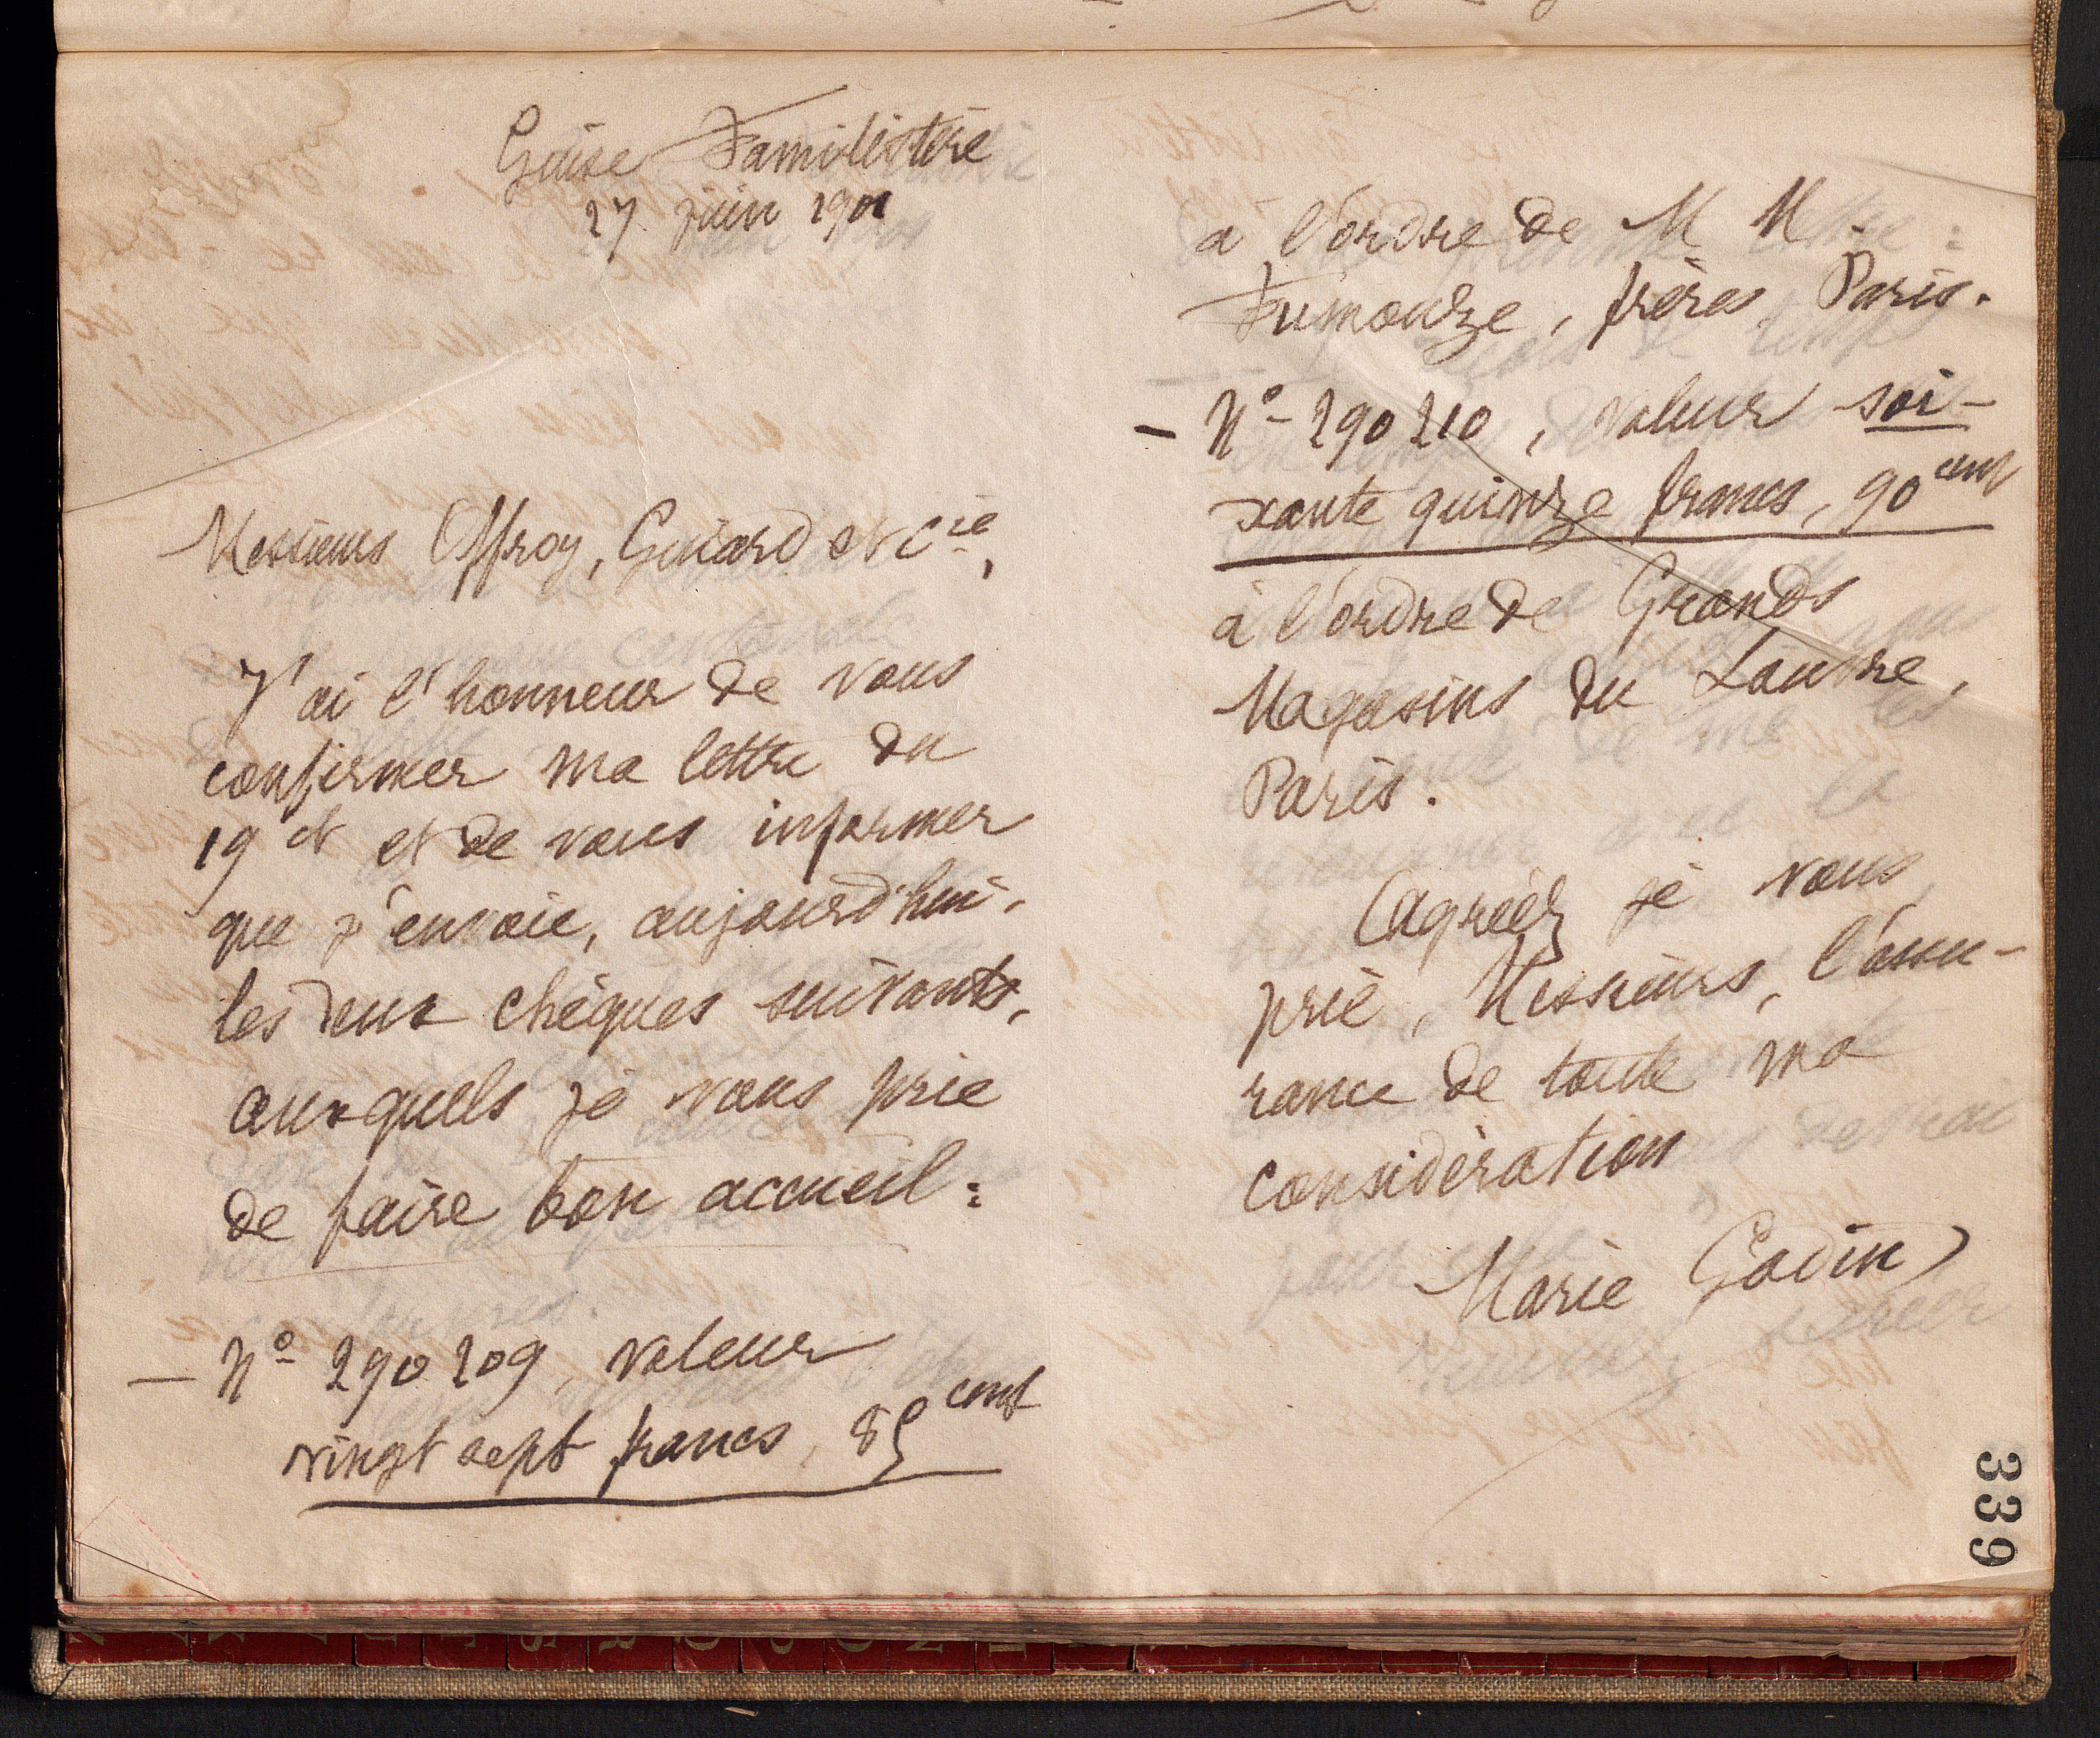 Guise Familistère
27 juin 1901
Messieurs Offroy, Guiard et Cie,
J'ai l'honneur de vous
confirmer ma lettre du
19 ct et de vous informer
que j'envoie, aujourd'hui,
les deux chèques suivants,
auxquels je vous prie
de faire bon accueil :
— No 290 209, valeur
vingt sept francs, 85 cent
à l'ordre de M M.
Fumouze, frères Paris.
— No 290 210, valeur soi-
xante quinze francs, 90 cent
à l'ordre de Grands
Magasins du Louvre,
Paris.
Agréez je vous
prie, Messieurs, l'assu-
rance de toute ma
considération
Marie Godin
339